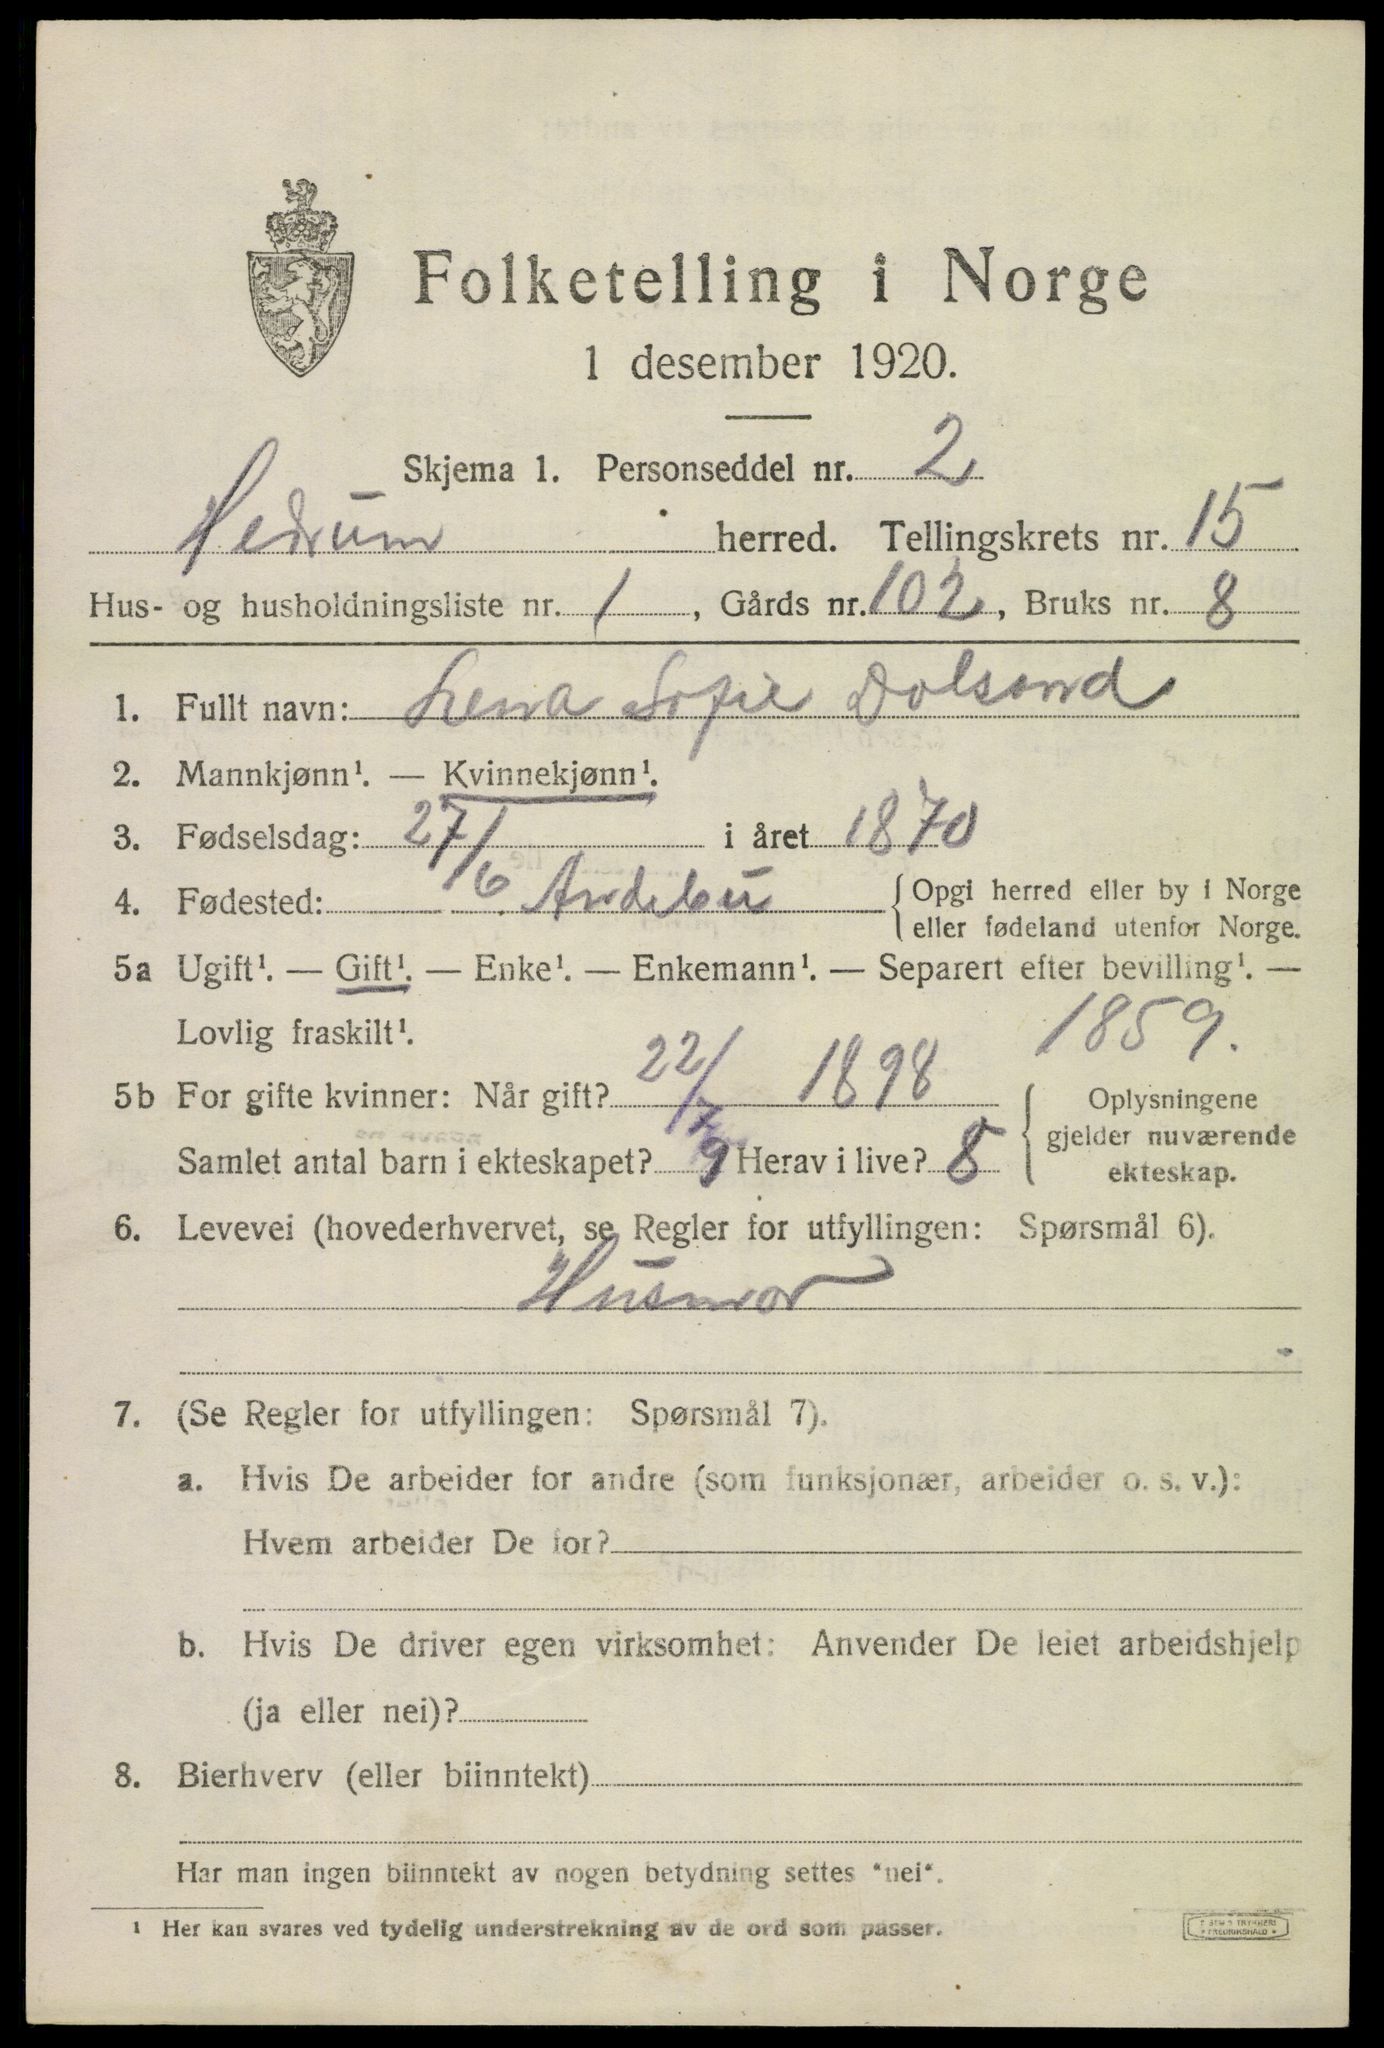 Folketelling i Norge
1 desember 1920.
Skjema 1. Personseddel nr. 2
Hedrum herred. Tellingskrets nr. 15
Hus- og husholdningsliste nr. 1, Gårds nr. 102, Bruks nr. 8
1. Fullt navn: Lena Sofie Dolsand
2. Mannkjønn¹. — Kvinnekjønn¹.
3. Fødselsdag: 27/6 i året 1870
4. Fødested: Andebu { Opgi herred eller by i Norge
eller fødeland utenfor Norge.
5a Ugift¹. — Gift¹. — Enke¹. — Enkemann¹. — Separert efter bevilling¹. —
Lovlig fraskilt¹. 1859.
5b For gifte kvinner: Når gift? 22/7 1898 { Oplysningene
gjelder nuværende
Samlet antal barn i ekteskapet? 9 Herav i live? 8 ekteskap.
6. Levevei (hovederhvervet, se Regler for utfyllingen: Spørsmål 6).
Husmor
7. (Se Regler for utfyllingen: Spørsmål 7).
a. Hvis De arbeider for andre (som funksjonær, arbeider o. s. v.):
Hvem arbeider De for?
b. Hvis De driver egen virksomhet: Anvender De leiet arbeidshjelp
(ja eller nei)?
8. Bierhverv (eller biinntekt)
Har man ingen biinntekt av nogen betydning settes "nei".
¹ Her kan svares ved tydelig understrekning av de ord som passer.